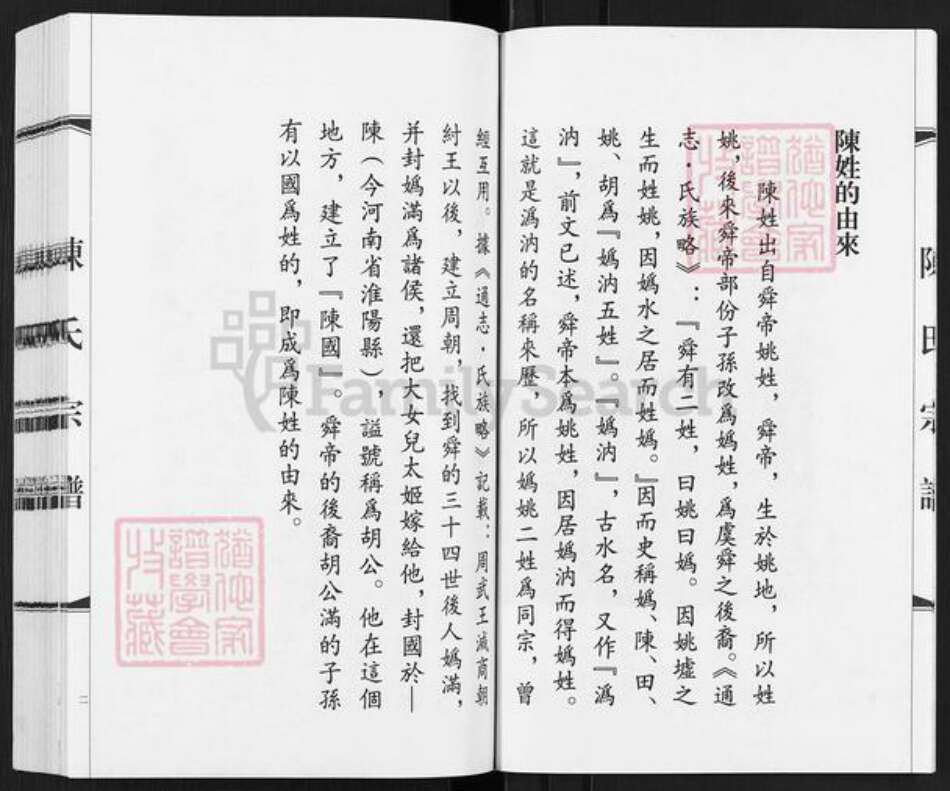 陳姓的由來
陳姓出自舜帝姚姓，舜帝，生於姚地，所以姓
姚，後來舜帝部份子孫改爲嬀姓，爲虞舜之後裔。《通
志·氏族略》：『舜有二姓，曰姚曰嬀。因姚墟之
生而姓姚，因嬀水之居而姓嬀。』因而史稱嬀、陳、田、
姚、胡爲『嬀汭五姓』。『嬀汭』，古水名，又作『潙
汭』，前文已述，舜帝本爲姚姓，因居嬀汭而得嬀姓。
這就是潙汭的名稱來歷，所以嬀姚二姓爲同宗，曾
經互用。據《通志·氏族略》記載：周武王滅商朝
紂王以後，建立周朝，找到舜的三十四世後人嬀滿，
并封嬀滿爲諸侯，還把大女兒太姬嫁給他，封國於—
陳（今河南省淮陽縣），謚號稱爲胡公。他在這個
地方，建立了『陳國』。舜帝的後裔胡公滿的子孫
有以國爲姓的，即成爲陳姓的由來。
陳氏宗譜
陳氏宗譜
二
FamilySearch